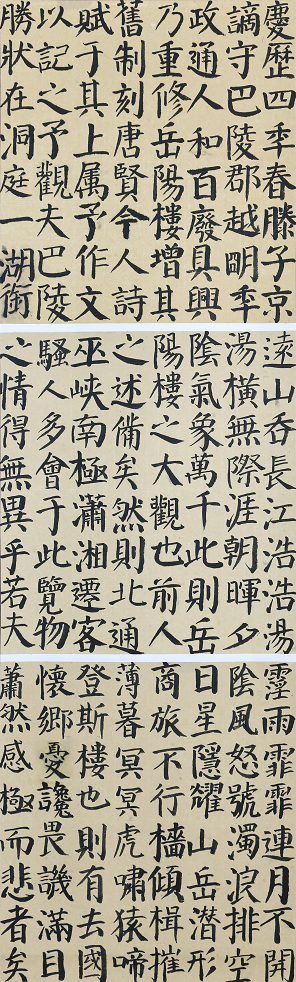 慶歷四秊春滕子京
謫守巴陵郡越眀秊
政通人和百廢具興
乃重修岳陽樓增其
舊制刻唐賢今人詩
賦于其上属予作文
以記之予觀夫巴陵
勝狀在洞庭一湖銜
遠山吞長江浩浩湯
湯橫無際涯朝暉夕
陰氣象萬千此則岳
陽樓之大觀也前人
之述備矣然則北通
巫峽南極瀟湘遷客
騷人多會于此覽物
之情得無異乎若夫
霪雨霏霏連月不開
陰風怒號濁浪排空
日星隱耀山岳潛形
商旅不行檣傾楫摧
薄暮冥冥虎嘯猿啼
登斯樓也則有去國
懷鄉憂讒畏譏滿目
蕭然感極而悲者矣